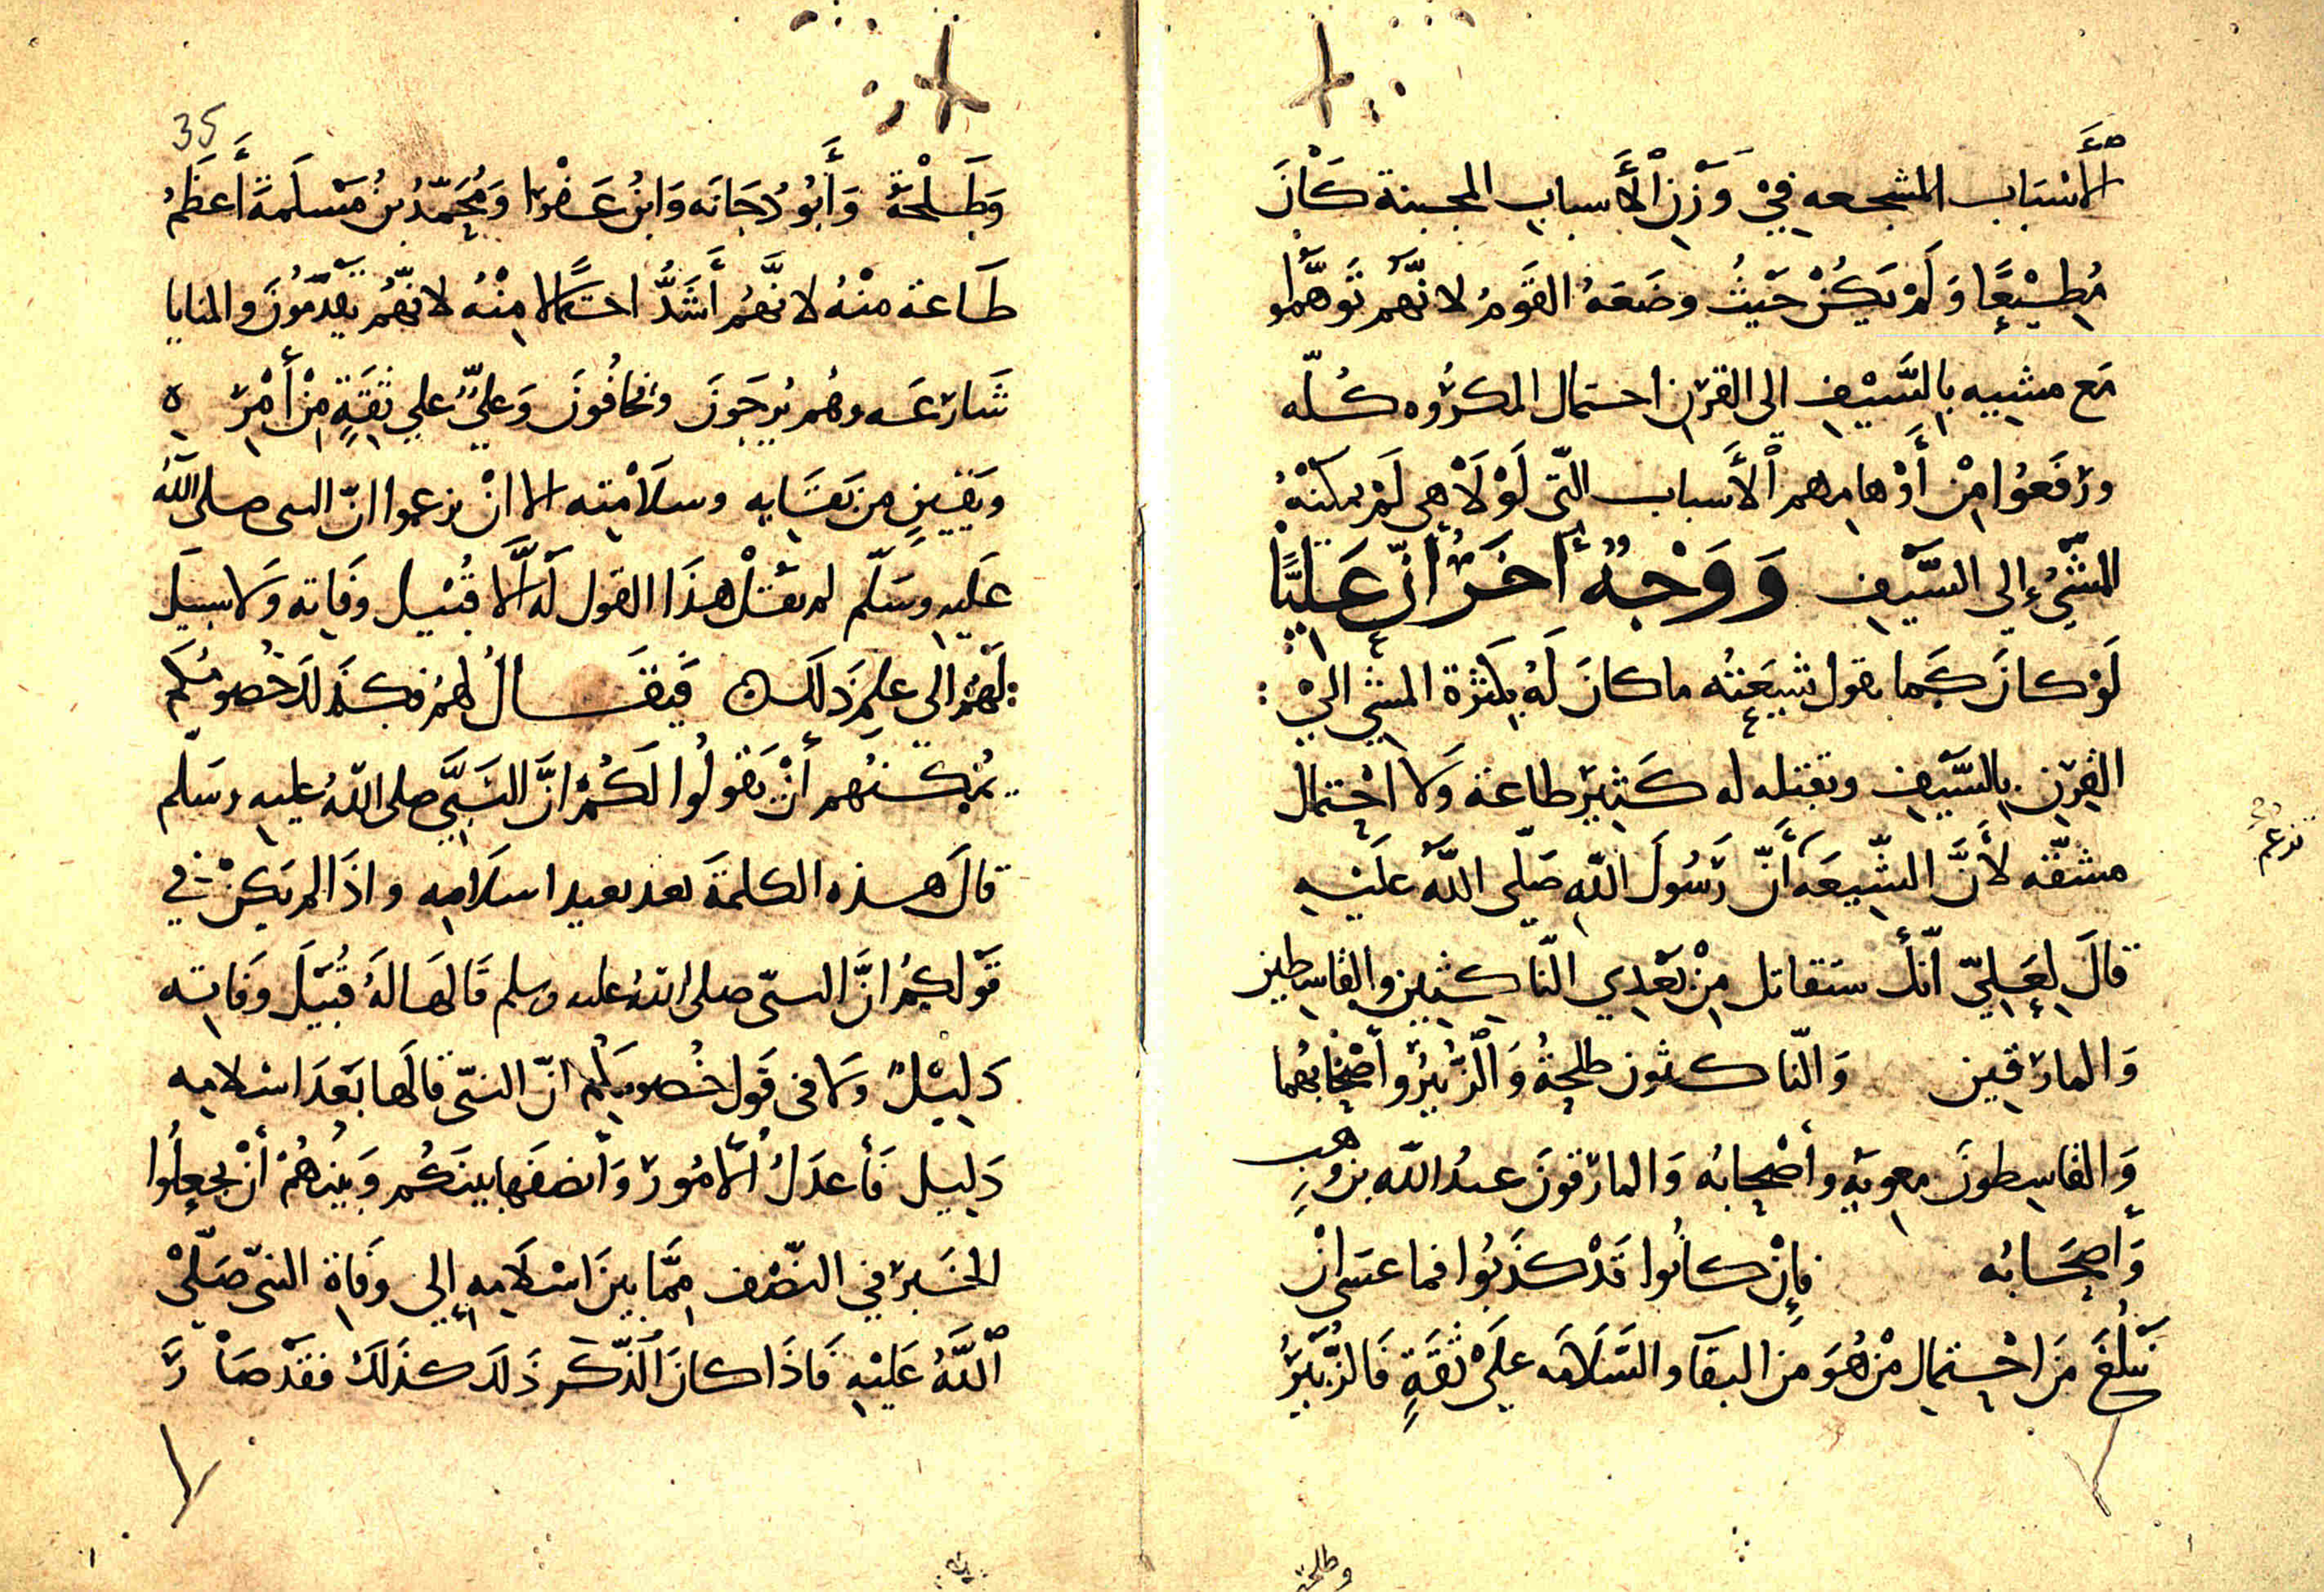 الأَسْبَاب المشجعه فِيْ وَزْنِ الأَسباب المجبنة كَانَ
مُطِيْعًا وَلَمْ يَكُنْ حَيْثُ وضَعَهُ القَوْمُ لانّهُم تَوهَّمُوا
مَع مشيه بِالسَّيْفِ الى القرن احتمال المكرُوه كُلّه
ورَفَعُوا مِنْ أَوْهامِهم الأَسباب التّي لَوْلَاهي لَمْ يمكنْهُ
المشْيُ إِلى السَّيفِ وَوَجْهٌ أخَرُ انّ عَلِيًّا
لَوْ كانَ كَما يقول شِيعَتُه ما كانَ لَهُ بِكَثْرة المشْيِ الىْ
القِرْنِ بِالسَّيفِ وبقتله له كَثِيْرُ طاعة وَلا احْتِمال
مشقّه لأَنَّ الشِّيعَه أَنّ رَسُولَ اللّهِ صَلّى اللّهُ عَلَيْهِ
تزعم
قالَ لِعَلِيّ انّكَ ستقاتل مِنْ بَعْدِي النّاكِثِينَ والقاسِطِين
وَالمارقِين وَالنّاكثون طلحةُ وَالزُّبَيْرُ وأَصْحَابُهُما
وَالقاسِطونَ معوية وأَصْحابُه وَالمارقونَ عبدُ اللّه بن وهب
وَأَصْحَابُه فإِنْ كانُوا قَدْ كذَبُوا فما عسَى انْ
يَبْلُغَ مَن احْتِمال مَنْ هُوَ مَن البقآ والسَّلَامَه عَلَىْ ثقَةٍ فَالزُّبَيْرُ
وطلحة
35
وَطَلْحَةُ وَأَبُو دُجَانَه وَابْنُ عَفْرا وَمُحَمّدُ بنُ مَسْلَمةَ أَعظَمُ
طَاعة منْهُ لانَّهُم أَشَدُّ احتمالا مِنْهُ لانّهُم يقدّمُونَ والمنايا
شَارعَه وهُم يُرجَونَ ويخافُونَ وَعَليٌّ على ثقَةٍ مِنْ أَمْرِه
ويَقينٍ من بَقَايِه وسلَامَتِه الا انْ يزعموا انّ النبى صلى اللّهُ
عَليهِ وسَلّم لم يقُلْ هذَا القول لَه الّا قُبَيْل وفَاتِه وَلا سبيلَ
لَهُم الى علم ذَلكَ فَيُقَالُ لهُم فكذَلك خُصومُكم
يُمكنهم أنْ يَقُولُوا لَكُمْ انَّ النَبيَّ صلى اللّهُ عليه وسَلّم
قالَ هذه الكلمة بعد بعيد اسلَامِه واذَا لم يكنْ في
قَوْلِكمْ انَّ النبيّ صلى اللهُ عليه وسلم قَالهَا لَهُ قُبَيْلَ وفَاتِه
دَلِيْلٌ وَلا فى قَول خُصومِكُم انّ النبيّ قالَها بَعْدَ اسْلامِه
دَلِيل فَأعدَلُ الأُمُورِ وَأَنصَفها بينَكُم وَبيْنهُمْ أنْ تجعلُوا
الخَبر في النصْف مِمَّا بينَ اسْلَامِه إِلى وفَاةِ النبيّ صَلّىْ
اللَّهُ عَلَيْهِ فَاذَا كانَ الذّكر ذَلكَ كذَلكَ فقَدْ صَارَ